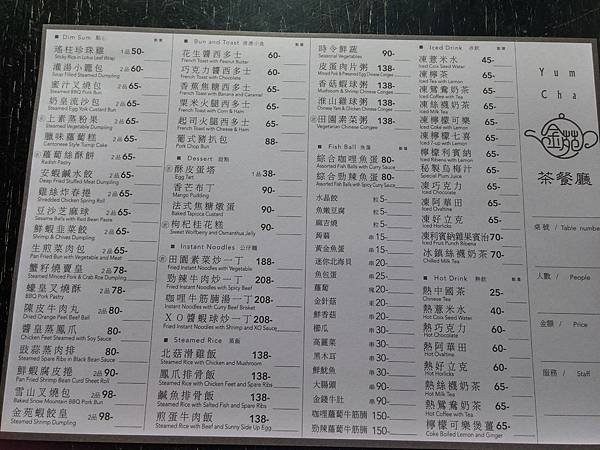 ■ Dim Sum 點心
瑤柱珍珠雞 1品 50-
Sticky Rice in Lotus Leaf Wrap
灌湯小籠包 2品 60-
Soup Filled Steamed Dumpling
蜜汁叉燒包 65-
Steamed BBQ Pork Bun
奶皇流沙包 65-
Steamed Egg Yolk Custard Bun
上素蒸粉果 65-
Steamed Vegetable Dumpling
臘味蘿蔔糕 2品 65-
Cantonese Style Turnip Cake
蘿蔔絲酥餅 2品 60-
Radish Pastry
安蝦鹹水餃 2品 60-
Deep Fried Stuffed Meat Dumpling
雞絲炸春捲 2品 65-
Shredded Chicken Spring Roll
豆沙芝麻球 2品 65-
Sesame Balls with Red Bean Paste
鮮蝦韭菜餃 2品 65-
Shrimp & Chives Dumpling
生煎菜肉包 2品 65-
Pan Fried Bun with Vegetable and Meat
蟹籽燒賣皇 2品 78-
Steamed Minced Pork & Crab Roe Dumpling
蠔皇叉燒酥 2品 78-
BBQ Pork Pastry
陳皮牛肉丸 2品 80-
Dried Orange Peel Beef Ball
醬皇蒸鳳爪 80-
Chicken Feet Steamed with Soy Sauce
豉蒜蒸肉排 80-
Steamed Spare Ribs in Black Bean Sauce
鮮蝦腐皮捲 2品 90-
Pan Fried Shrimp Bean Curd Sheet Roll
雪山叉燒包 2品 98-
Baked Snow Mountain BBQ Pork Bun
金苑蝦餃皇 2品 98-
Steamed Shrimp Dumpling
■ Bun and Toast
花生醬西多士 60-
French Toast with Peanut Butter
巧克力醬西多士 60-
French Toast with Chocolate
香蕉焦糖西多士 80-
French Toast with Banana and Caramel
粟米火腿西多士 80-
French Toast with Corn & Ham
起司火腿西多士 80-
French Toast with Cheese & Ham
葡式豬扒包 88-
Pork Chop Bun
■ Dessert 甜點
酥皮蛋塔 1品 38-
Egg Tart
香芒布丁 60-
Mango Pudding
法式焦糖燉蛋 60-
Baked Tapioca Custard
枸杞桂花糕 60-
Sweet Wolfberry and Osmanthus Jelly
■ Instant Noodles 公仔麵
田園素菜炒一丁 188-
Fried Instant Noodles with Vegetable
勁辣牛肉炒一丁 208-
Fried Instant Noodles with Spicy Beef
咖哩牛筋腩湯一丁 208-
Instant Noodles with Curry Beef Brisket
ＸＯ醬蝦球炒一丁 208-
Fried Instant Noodles with Shrimp and XO Sauce
■ Steamed Rice 蒸飯
北菇滑雞飯 138-
Steamed Rice with Chicken and Mushroom
鳳爪排骨飯 138-
Steamed Rice with Chicken Feet and Spare Ribs
鹹魚排骨飯 138-
Steamed Rice with Salted Fish and Spare Ribs
煎蛋牛肉飯 138-
Steamed Rice with Beef and Sunny Side Up Egg
時令鮮蔬 90-
Seasonal Vegetables
皮蛋肉片粥 138-
Mixed Pork & Preserved Egg Chinese Congee
香菇蝦球粥 138-
Mushroom & Shrimp Chinese Congee
淮山雞球粥 138-
Chinese Yam & Chicken Chinese Congee
田園素菜粥 138-
Vegetarian Chinese Congee
■ Fish Ball 魚蛋
綜合咖哩魚蛋 80-
Assorted Fish Balls with Curry Sauce
綜合勁辣魚蛋 80-
Assorted Fish Balls with Spicy Curry Sauce
水晶餃 粒 5-
魚嫩豆腐 粒 5-
龐吉燒 粒 5-
蒟蒻 串 15-
黃金魚蛋 串 15-
迷你北海貝 串 15-
魚包蛋 串 25-
蘿蔔 塊 20-
金針菇 串 20-
鮮香菇 串 20-
櫛瓜 串 30-
高麗菜 串 30-
黑木耳 串 30-
鮮魷魚 串 30-
大腸頭 串 90-
金錢牛肚 串 90-
咖哩蘿蔔牛筋腩 150-
勁辣蘿蔔牛筋腩 150-
■ Iced Drink 冰飲
凍薏米水 45-
Iced Coix Seed Water
凍檸茶 65-
Iced Tea with Lemon
凍鴛鴦奶茶 65-
Iced Coffee with Tea
凍絲襪奶茶 65-
Iced Milk Tea
凍檸檬可樂 65-
Iced Coke with Lemon
凍檸檬七喜 65-
Iced 7-up with Lemon
凍檸檬利賓納 65-
Iced Ribena with Lemon
秘製烏梅汁 65-
Special Plum Juice
凍巧克力 65-
Iced Chocolate
凍阿華田 65-
Iced Ovaltine
凍好立克 65-
Iced Horlicks
凍利賓納雜果賓治 70-
Iced Fruit Punch Ribena
冰鎮絲襪奶茶 70-
Chilled Milk Tea
■ Hot Drink 熱飲
熱中國茶 25-
Chinese Tea
熱薏米水 40-
Hot Coix Seed Water
熱巧克力 60-
Hot Chocolate
熱阿華田 60-
Hot Ovaltine
熱好立克 60-
Hot Horlicks
熱絲襪奶茶 60-
Hot Milk Tea
熱鴛鴦奶茶 65-
Hot Coffee with Tea
檸檬可樂煲薑 65-
Coke Boiled Lemon and Ginger
Yum
Cha
金苑
茶餐廳
桌號 / Table number
人數 / People
金額 / Price
服務 / Staff